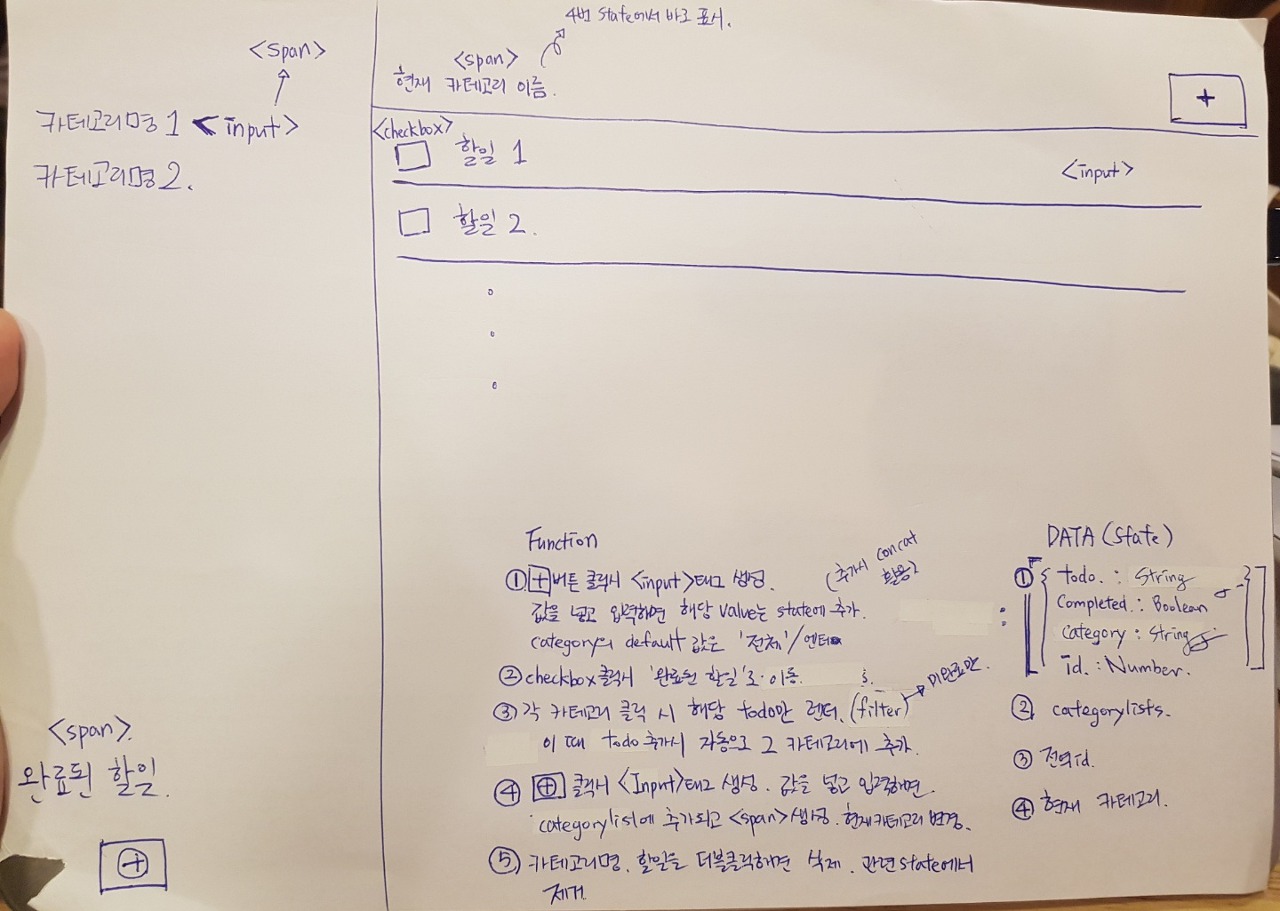 <span>
카테고리명 1 <input>
카테고리명 2.
<span>.
완료된 할일.
+
4번 state에서 바로 표시.
<span>
현재 카테고리 이름.
+
<checkbox>
할일 1
<input>
할일 2.
Function
① + 버튼 클릭시 <input>태그 생성.
(추가시 concat
활용)
값을 넣고 입력하면 해당 value는 state에 추가.
category의 default 값은 '전체'/엔터
② checkbox 클릭시 '완료된 할일'로 이동.
③ 각 카테고리 클릭 시 해당 todo만 렌더. (filter)
미완료만.
이 때 todo 추가시 자동으로 그 카테고리에 추가.
④ + 클릭시 <Input>태그 생성. 값을 넣고 입력하면.
categorylist에 추가되고 <span>생성. 현재카테고리 변경.
⑤ 카테고리명, 할일을 더블클릭하면 삭제. 관련state에서
제거.
DATA (state)
① : [{ todo. : String
Completed. : Boolean
Category : String
id. : Number. }]
② categorylists.
③ 전역id.
④ 현재 카테고리.